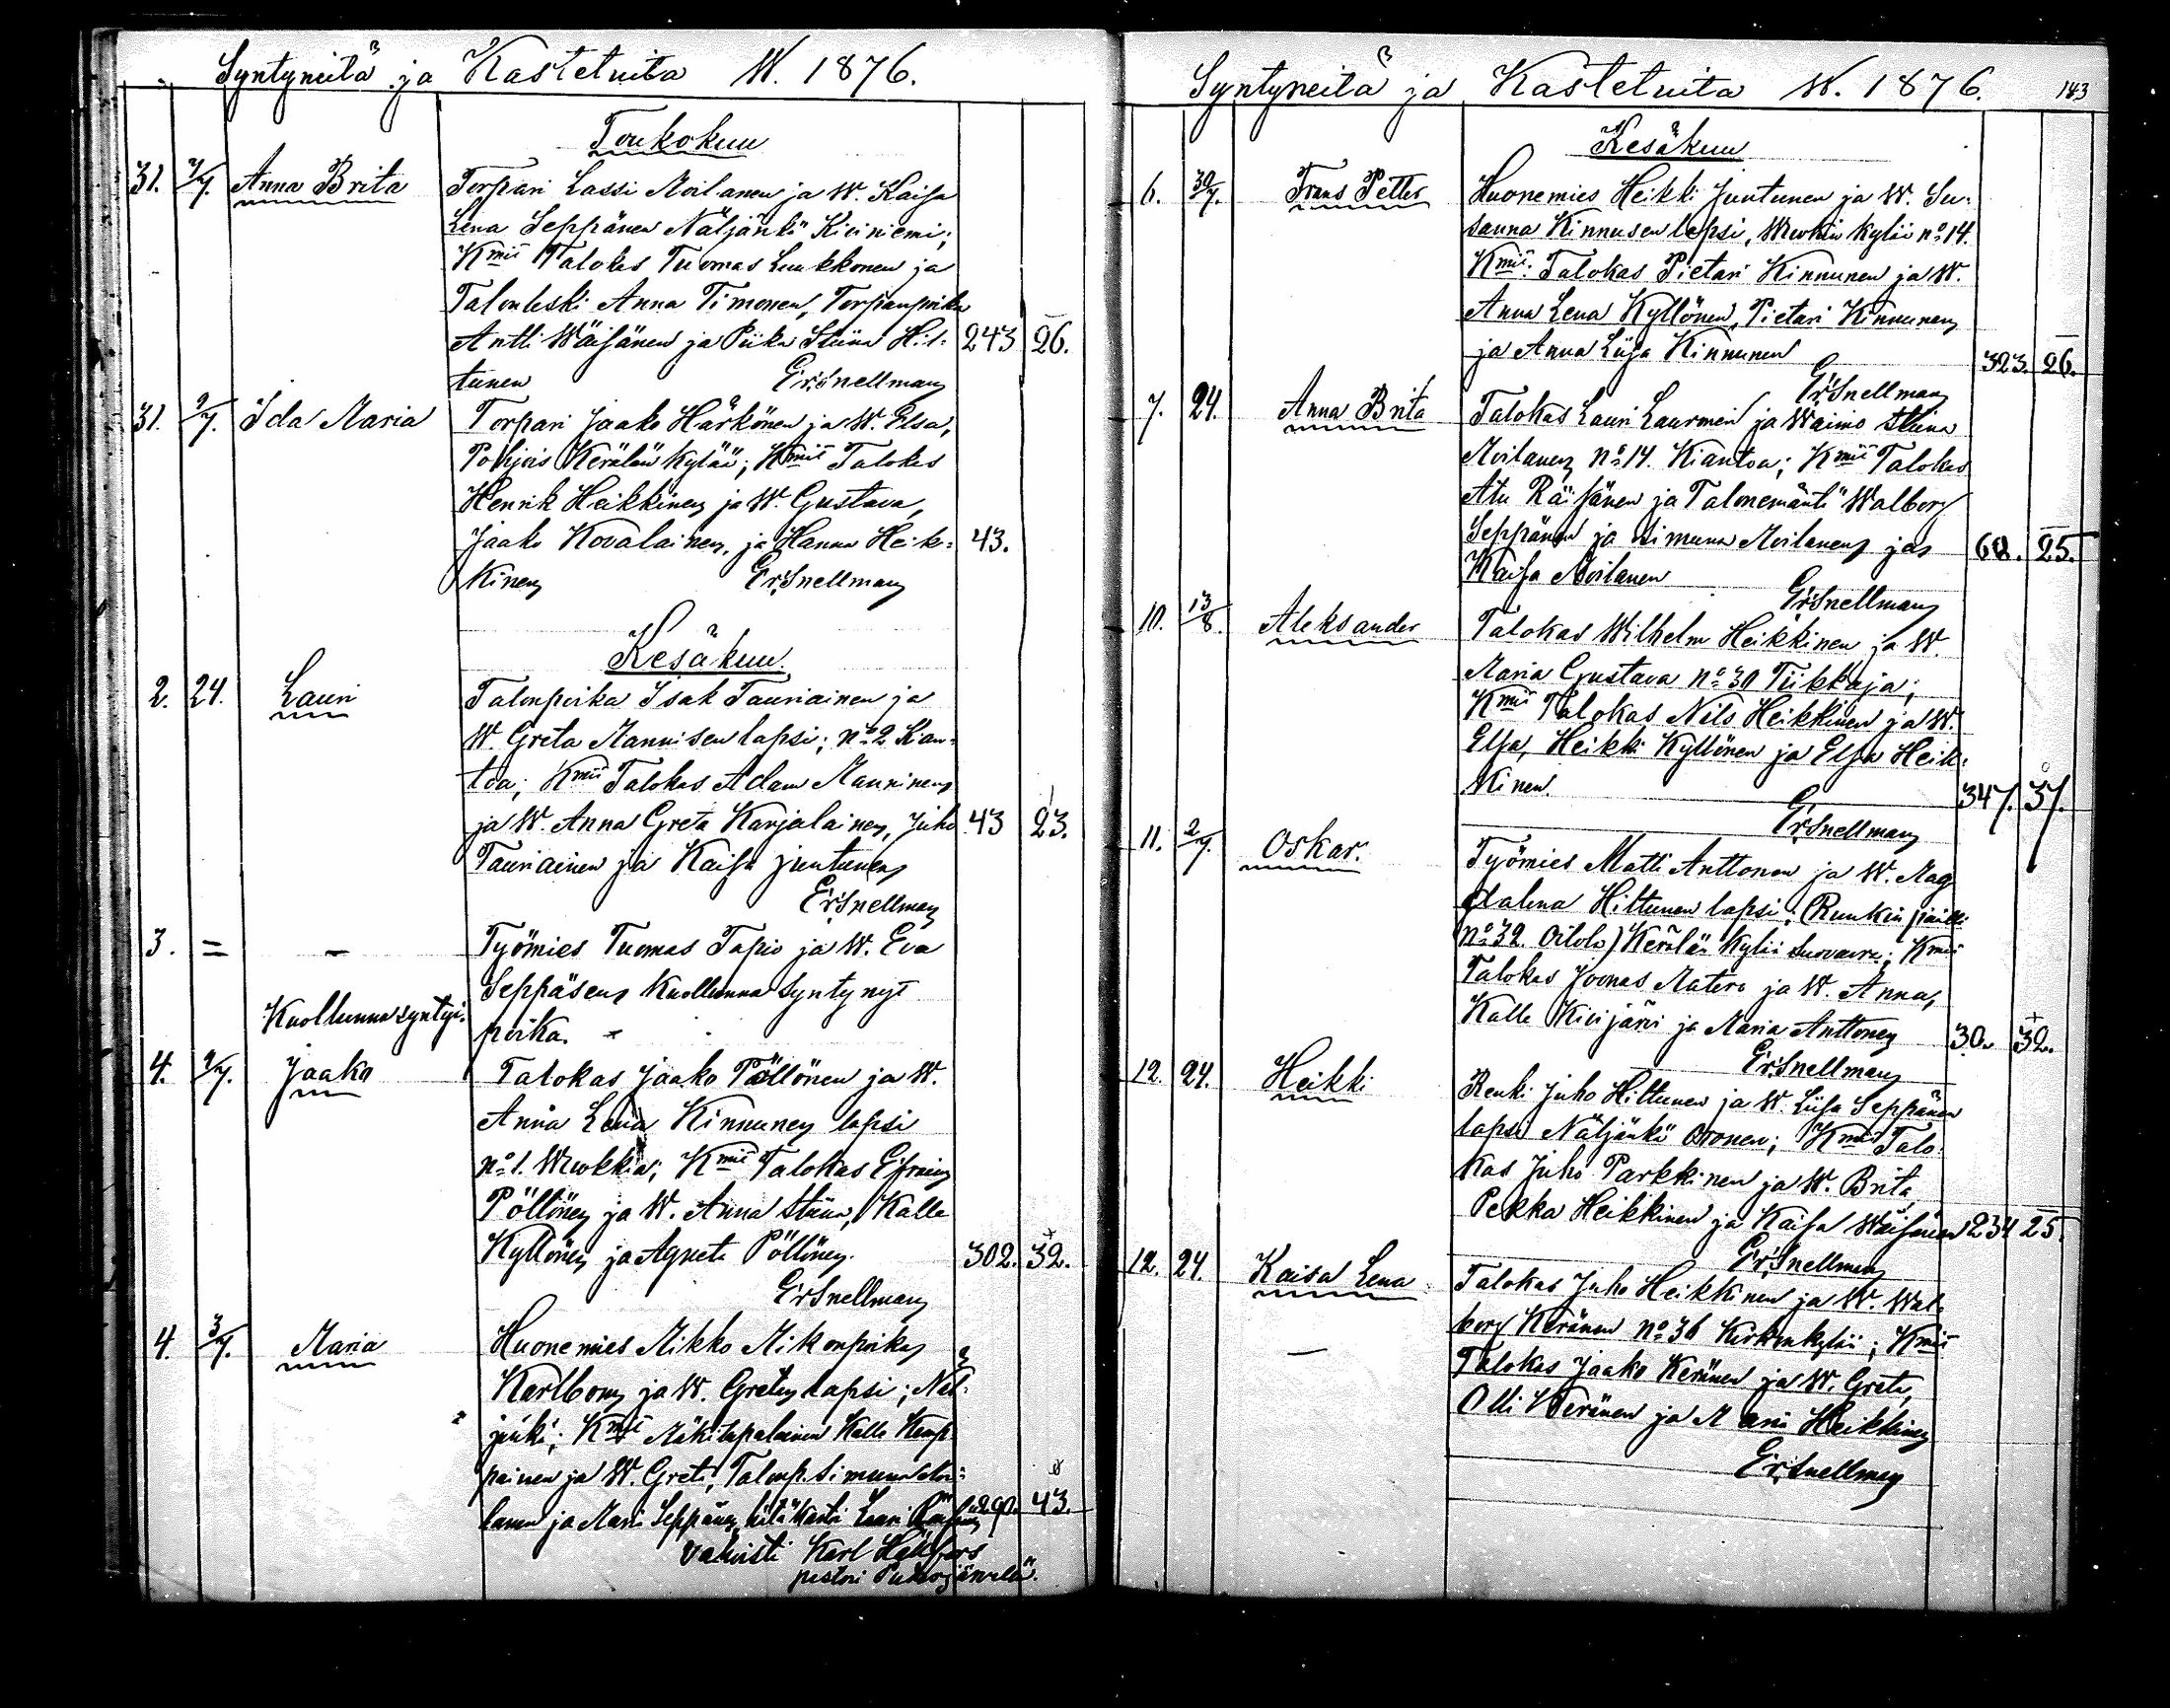 Syntyneitä ja Kastetuita W. 1876.
Toukokuu
31. 2/7. Anna Brita Torpari Lassi Moilanen ja W. Kaisa
Lena Seppänen Näljänkö Kiviniemi;
Kmit Talokas Tuomas Luukkonen ja
Talonleski Anna Timonen, Torpanpoika
Antti Wäisänen ja Piika Stiina Hil- 243 26.
tunen Er. Snellman
31. 2/7. Ida Maria Torpari Jaako Härkönen ja W. Elsa,
Pohjois Kerälän kylää; Kmit Talokas
Henrik Heikkinen ja W. Gustava,
Jaako Kovalainen, ja Hanna Heik- 43.
kinen Er. Snellman
Kesäkuu.
2. 24. Lauri Talonpoika Isak Tauriainen ja
W. Greta Mannisen lapsi; No 2 Kian-
toa; Kmit Talokas Adam Manninen
ja W. Anna Greta Karjalainen, Juho 43 23.
Tauriainen ja Kaisa Juntunen
Er. Snellman
3. = - Työmies Tuomas Tapio ja W. Eva
Seppäsen kuollunna syntynyt
Kuollunna syntyi.
poika.
4. 2/7. Jaako Talokas Jaako Pöllönen ja W.
Anna Lena Kinnunen lapsi
No 1. Wuokkia; Kmit Talokas Efraim
Pöllönen ja W. Anna Stiina, Kalle
Kyllönen ja Agneta Pöllönen. 302. 32.
Er Snellman
4. 3/7. Maria Huonemies Mikko Mikonpoika
Karlbom ja W. Gretan lapsi; Näl-
jänkö; Kmit Mäkitupalainen Kalle Kemp-
painen ja W. Greta, Talonp. Simuna Moi-
lanen ja Maria Seppänen, hätäkasti Lauri Räisänen 290. 43.
vahvisti Karl Hällfors
pastori Pudasjärvellä.
Syntyneitä ja Kastetuita W. 1876. 143
Kesäkuu
6. 30/7. Frans Petter Huonemies Heikki Juntunen ja W. Su-
sanna Kinnusen lapsi, Wuokin kylää No 14.
Kmit. Talokas Pietari Kinnunen ja W.
Anna Lena Kyllönen, Pietari Kinnunen
ja Anna Liisa Kinnunen 323. 26.
Er. Snellman
7. 24. Anna Brita Talokas Lauri Laurinen ja Waimo Stiina
Moilanen No 14. Kiantoa; Kmit Talokas
Atu Räisänen ja Talonemäntä Walborg
Seppänen ja Simuna Moilanen ja 68. 25.
Kaisa Moilanen
Er. Snellman
10. 13/8. Aleksander Talokas Wilhelm Heikkinen ja W.
Maria Gustava No 30 Tiikkaja;
Kmit Talokas Nils Heikkinen ja W.
Elsa, Heikki Kyllönen ja Elsa Heik-
kinen. 347. 37.
Er. Snellman
11. 2/7. Oskar. Työmies Matti Anttonen ja W. Mag
dalena Hiltunen lapsi;
No 32. Oilola) Kerälän kylää; Kmit
Talokas Joonas Matero ja W. Anna,
Kalle Kivijärvi ja Maria Anttonen 30. 32.
Er. Snellman
12. 24. Heikki Renki Juho Hiltunen ja W. Liisa Seppänen
lapsi Näljänkö Oronen; Kmit Talo-
kas Juho Parkkinen ja W. Brita
Pekka Heikkinen ja Kaisa Wäisänen 234 25.
Er. Snellman
12. 24. Kaisa Lena Talokas Juho Heikkinen ja W. Wal-
borg Keränen No 36 Kirkonkylää; Kmit
Talokas Jaako Keränen ja W. Greta,
Olli Keränen ja Maria Heikkinen
Er. Snellman